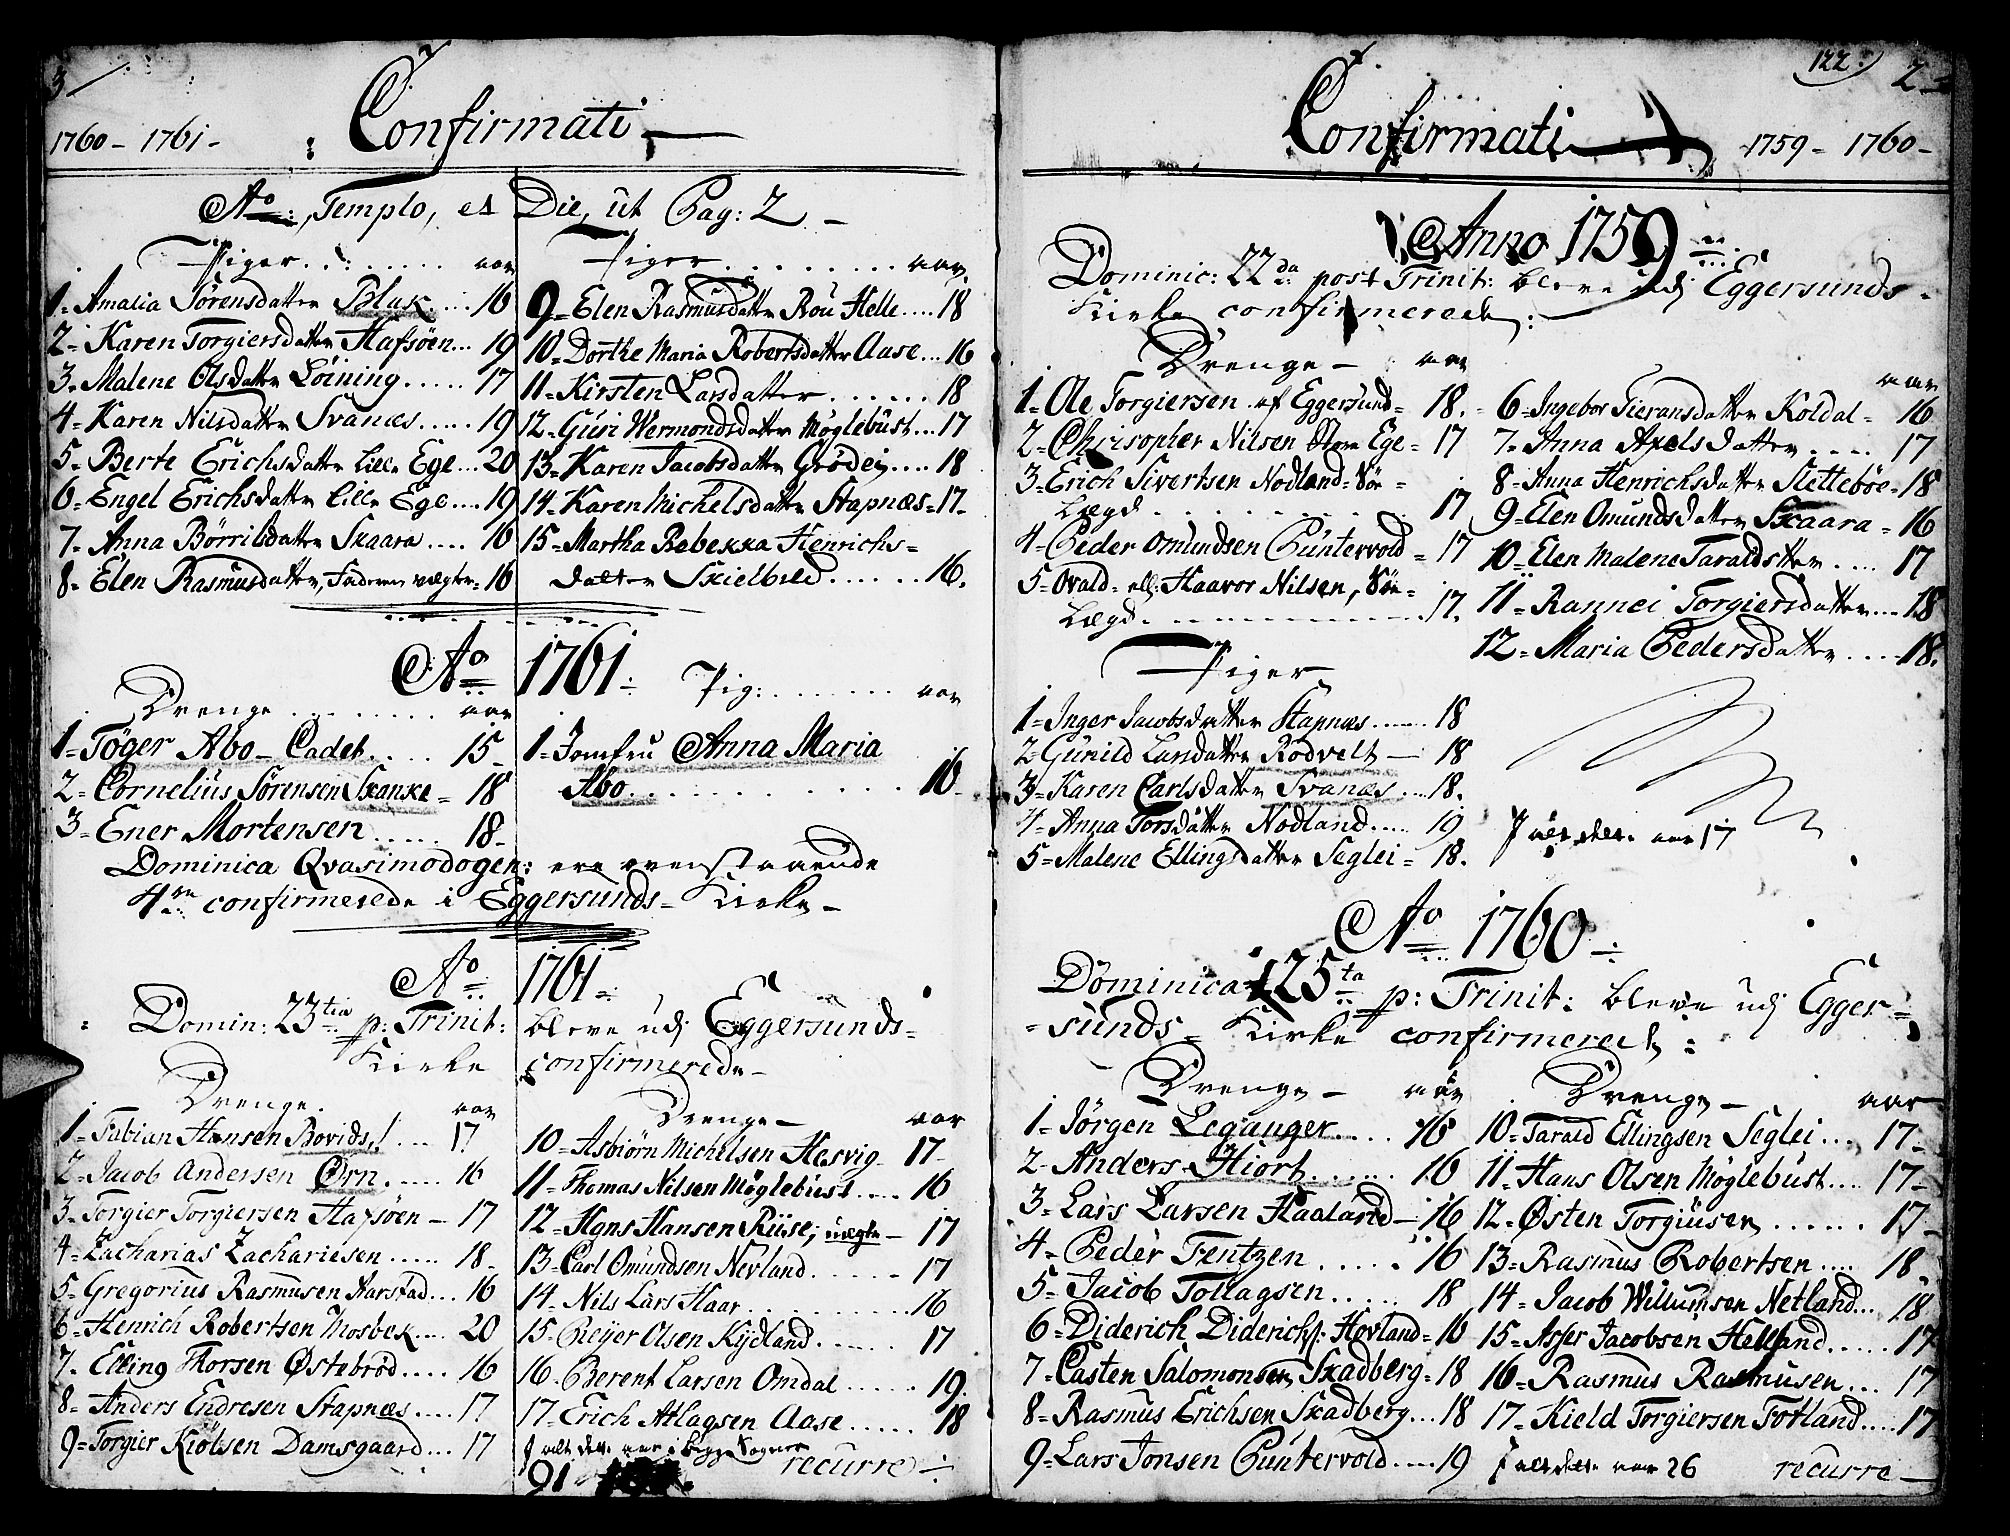 3
1760 - 1761 -
Confirmati
Ao: Templo, et Die, ut Pag: 2 -
Piger aar
1- Amalia Sörensdatter Blak 16
2- Karen Torgiersdatter Hafsöen 19
3- Malene Olsdatter Löining 17
4- Karen Nilsdatter Svanæs 19
5- Berte Erichsdatter Lille Ege 20
6- Engel Erichsdatter Lille Ege 19
7- Anna Börrildatter Skaara 16
8- Elen Rasmusdatter, Faderen vægter 16
Piger aar
9- Elen Rasmusdatter Rou Helle 18
10- Dorthe Maria Robertsdatter Aase 16
11- Kirsten Larsdatter 18
12- Guri Wermondsdatter Møglebüst 17
13- Karen Jacobsdatter Grödei 18
14- Karen Michelsdatter Stapnæs 17
15- Martha Rebekka Henrichs=
datter Skielbred 16
Ao 1761
Drenge aar
1- Töger Abo - Cadet 15
2- Cornelius Sörensen Skanke 18
3- Ener Mortensen 18
Pig: aar
1- Jomfru Anna Maria
Abo 16
Dominica Qvasimodogen: ere ovenstaaende
4re confirmerede i Eggersunds- Kirke -
Ao 1761
Domin: 23tia p: Trinit: bleve udj Eggersunds=
Kirke confirmerede -
Drenge aar
1- Fabian Hansen Bovids 17
2- Jacob Andersen Örn 16
3- Torgier Torgiersen Hafsöen 17
4- Zacharias Zachariesen 18
5- Gregorius Rasmusen Aarstad 16
6- Henrich Robertsen Mosbek 20
7- Elling Thorsen Østebrød 16
8- Anders Endresen Stapnæs 17
9- Torgier Kiölsen Damsgaard 17
Drenge aar
10- Asbiörn Michelsen Hesvig 17
11- Thomas Nilsen Møglebüst 16
12- Hans Hansen Riise, uægte 17
13- Carl Omundsen Nevland 17
14- Nils Lars Haar 16
15- Reijer Olsen Kydland 17
16- Berent Larsen Omdal 19
17- Erich Atlagsen Aase 18
I alt dette aar i begge Sogner
91 recurre
122
2
Confirmati
1759 - 1760 -
Anno 1759
Dominic: 22da post Trinit: bleve udj Eggersunds
Kirke confirmerede:
Drenge - aar
1- Ole Torgiersen af Eggersund 18
2- Chrisopher Nilsen Store Ege 17
3- Erich Sivertsen Nodland Sör
Lægd 17
4- Peder Omundsen Puntervold 17
5- Ovald ell: Haavor Nilsen, Sör
Lægd 17
Piger
1- Inger Jacobsdatter Stapnæs 18
2- Gunild Larsdatter Rödvelt 18
3- Karen Carlsdatter Svanæs 18
4- Anna Torsdatter Nodland 19
5- Malene Ellingsdatter Seglei 18
aar
6- Ingebor Tieransdatter Koldal 16
7- Anna Axelsdatter 17
8- Anna Henrichsdatter Slettebøe 18
9- Elen Omundsdatter Skaara 16
10- Elen Malene Taraldsdtter 17
11- Rannei Torgiersdatter 18
12- Maria Pedersdatter 18
I alt dette aar 17
Ao 1760
Dominica 25ta p: Trinit: bleve udj Egger=
sunds- Kirke confirmerede:
Drenge - aar
1- Jörgen Leganger 16
2- Anders Hiort 16
3- Lars Larsen Haaland 16
4- Peder Fentzen 16
5- Jacob Tollagsen 18
6- Diderich Diderichs: Hovland 16
7- Casten Salomonsen Skadberg 18
8- Rasmus Erichsen Skadberg 18
9- Lars Jonsen Puntervold 19
Drenge - aar
10- Tarald Ellingsen Seglei 17
11- Hans Olsen Møglebüst 17
12- Østen Torgiusen 17
13- Rasmus Robertsen 18
14- Jacob Willumsen Netland 18
15- Asser Jacobsen Helland 17
16- Rasmus Rasmusen 17
17- Kield Torgiersen Totland 17
I alt dette aar 26 recurre